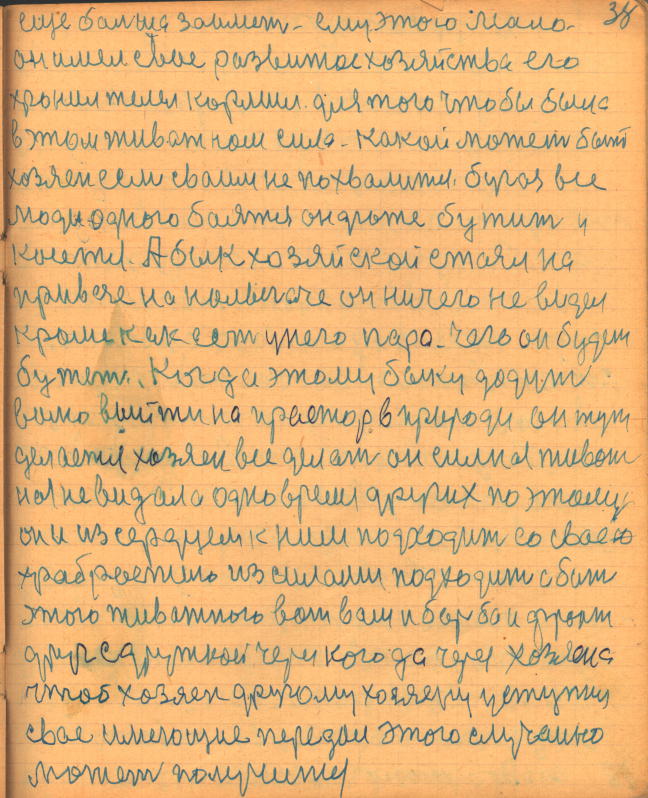 38
еще больша займет. ему этого мало.
он имел свое развитое хозяйства его
хронил телел кормил. для того чтобы была
в этом животном сила. Какой может быт
хозяен если своим не похвалится. бугоя все
люди одного боятся он даже бутит и
колется. А бык хозяйской стоял на
привязе на нолыгаче он ничего не видел
кроме как ест у него пара. чего он будет
бутет. Когда этому быку дадут
волю выйти на простор в природи он тут
делается хозяен все делат он силная живот
ная невидала одно время других по этому
он и из сердцем к ним подходит со своею
храбростию из силами подходит а быт
этого животного вот вам и борьба и фронт
друг с дружкой через кого да через хозяена
чтоб хозяен другому хозяену уступил
свое имеющие передом этого случаино
может получится